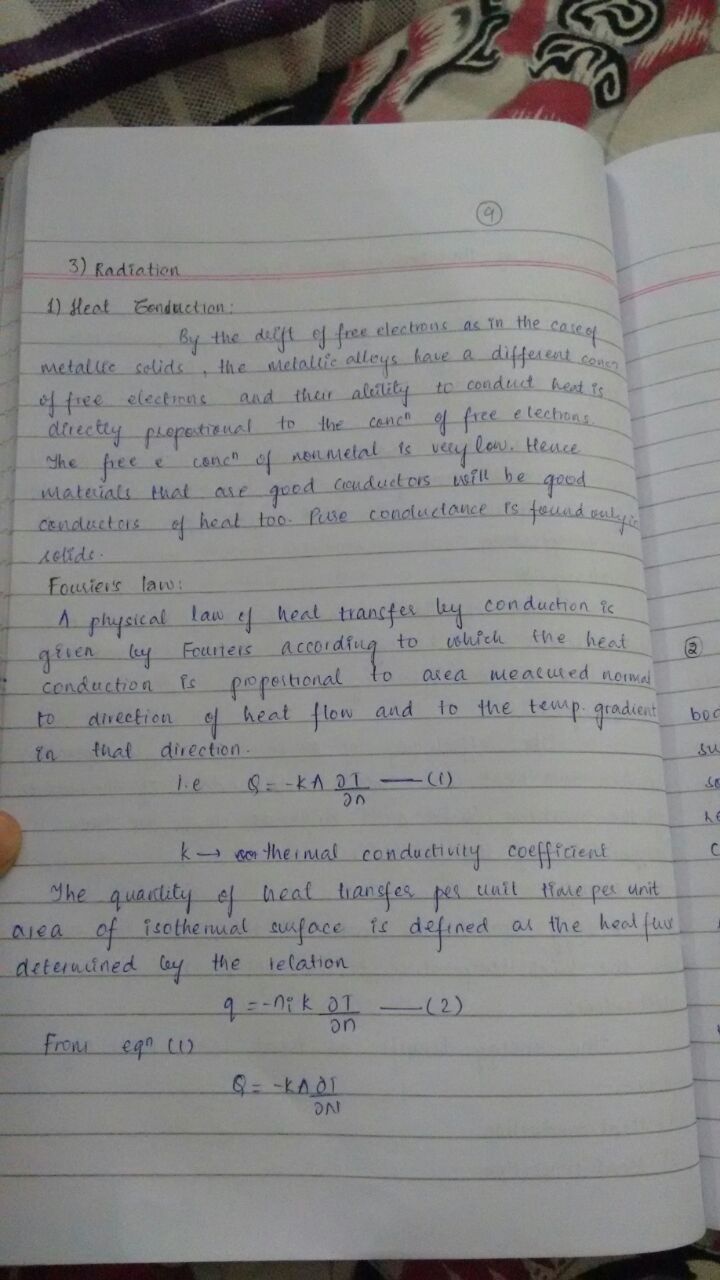 9
3) Radiation
1) Heat Conduction:
By the drift of free electrons as in the case of
metallic solids, the metallic alloys have a different concn
of free electrons and their ability to conduct heat is
directly proportional to the concn of free electrons.
The free e concn of nonmetal is very low. Hence
materials that are good conductors will be good
conductors of heat too. Pure conductance is found only in
solids.
Fourier's law:
A physical law of heat transfer by conduction is
given by Fouriers according to which the heat
conduction is proportional to area measured normal
to direction of heat flow and to the temp. gradient
in that direction.
i.e Q = -kA ∂T/∂n —(1)
k → thermal conductivity coefficient
The quantity of heat transfer per unit time per unit
area of isothermal surface is defined as the heat flux
determined by the relation
q = -ni k ∂T/∂n —(2)
From eqn (1)
Q = -kA ∂T/∂N
2
su